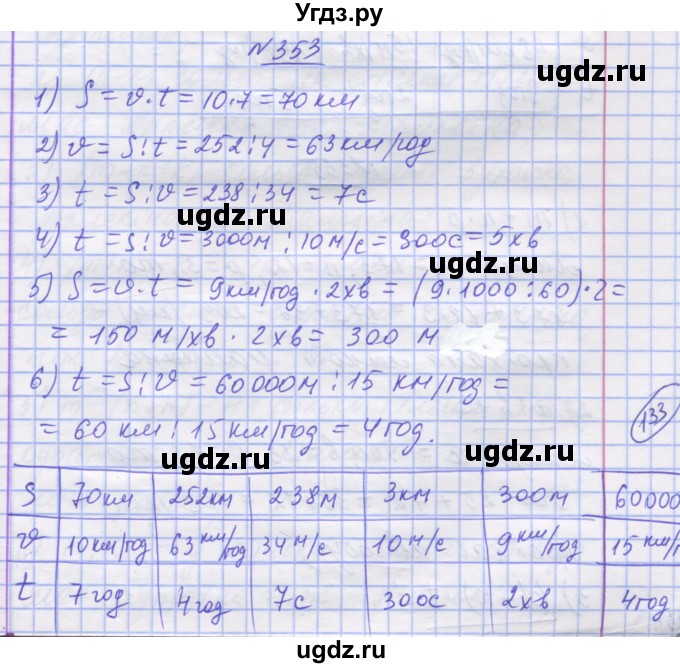 Угдз.ру
№353
ugdz.ru
1) S = v · t = 10 · 7 = 70 км
2) v = S : t = 252 : 4 = 63 км/год
ugdz.ru
3) t = S : v = 238 : 34 = 7с
ugdz.ru
4) t = S : v = 3000м : 10 м/с = 300с = 5хв
ugdz.ru
5) S = v · t = 9 км/год · 2хв = (9 · 1000 : 60) · 2 =
= 150 м/хв · 2хв = 300 м
6) t = S : v = 60 000м : 15 км/год =
= 60 км : 15 км/год = 4год.
133
ugdz.ru
S 70км 252км 238м 3км 300м 60000
v 10км/год 63 км/год 34 м/с 10 м/с 9 км/год 15 км/г
t 7год 4год 7с 300с 2хв 4год
ugdz.ru
ugdz.ru